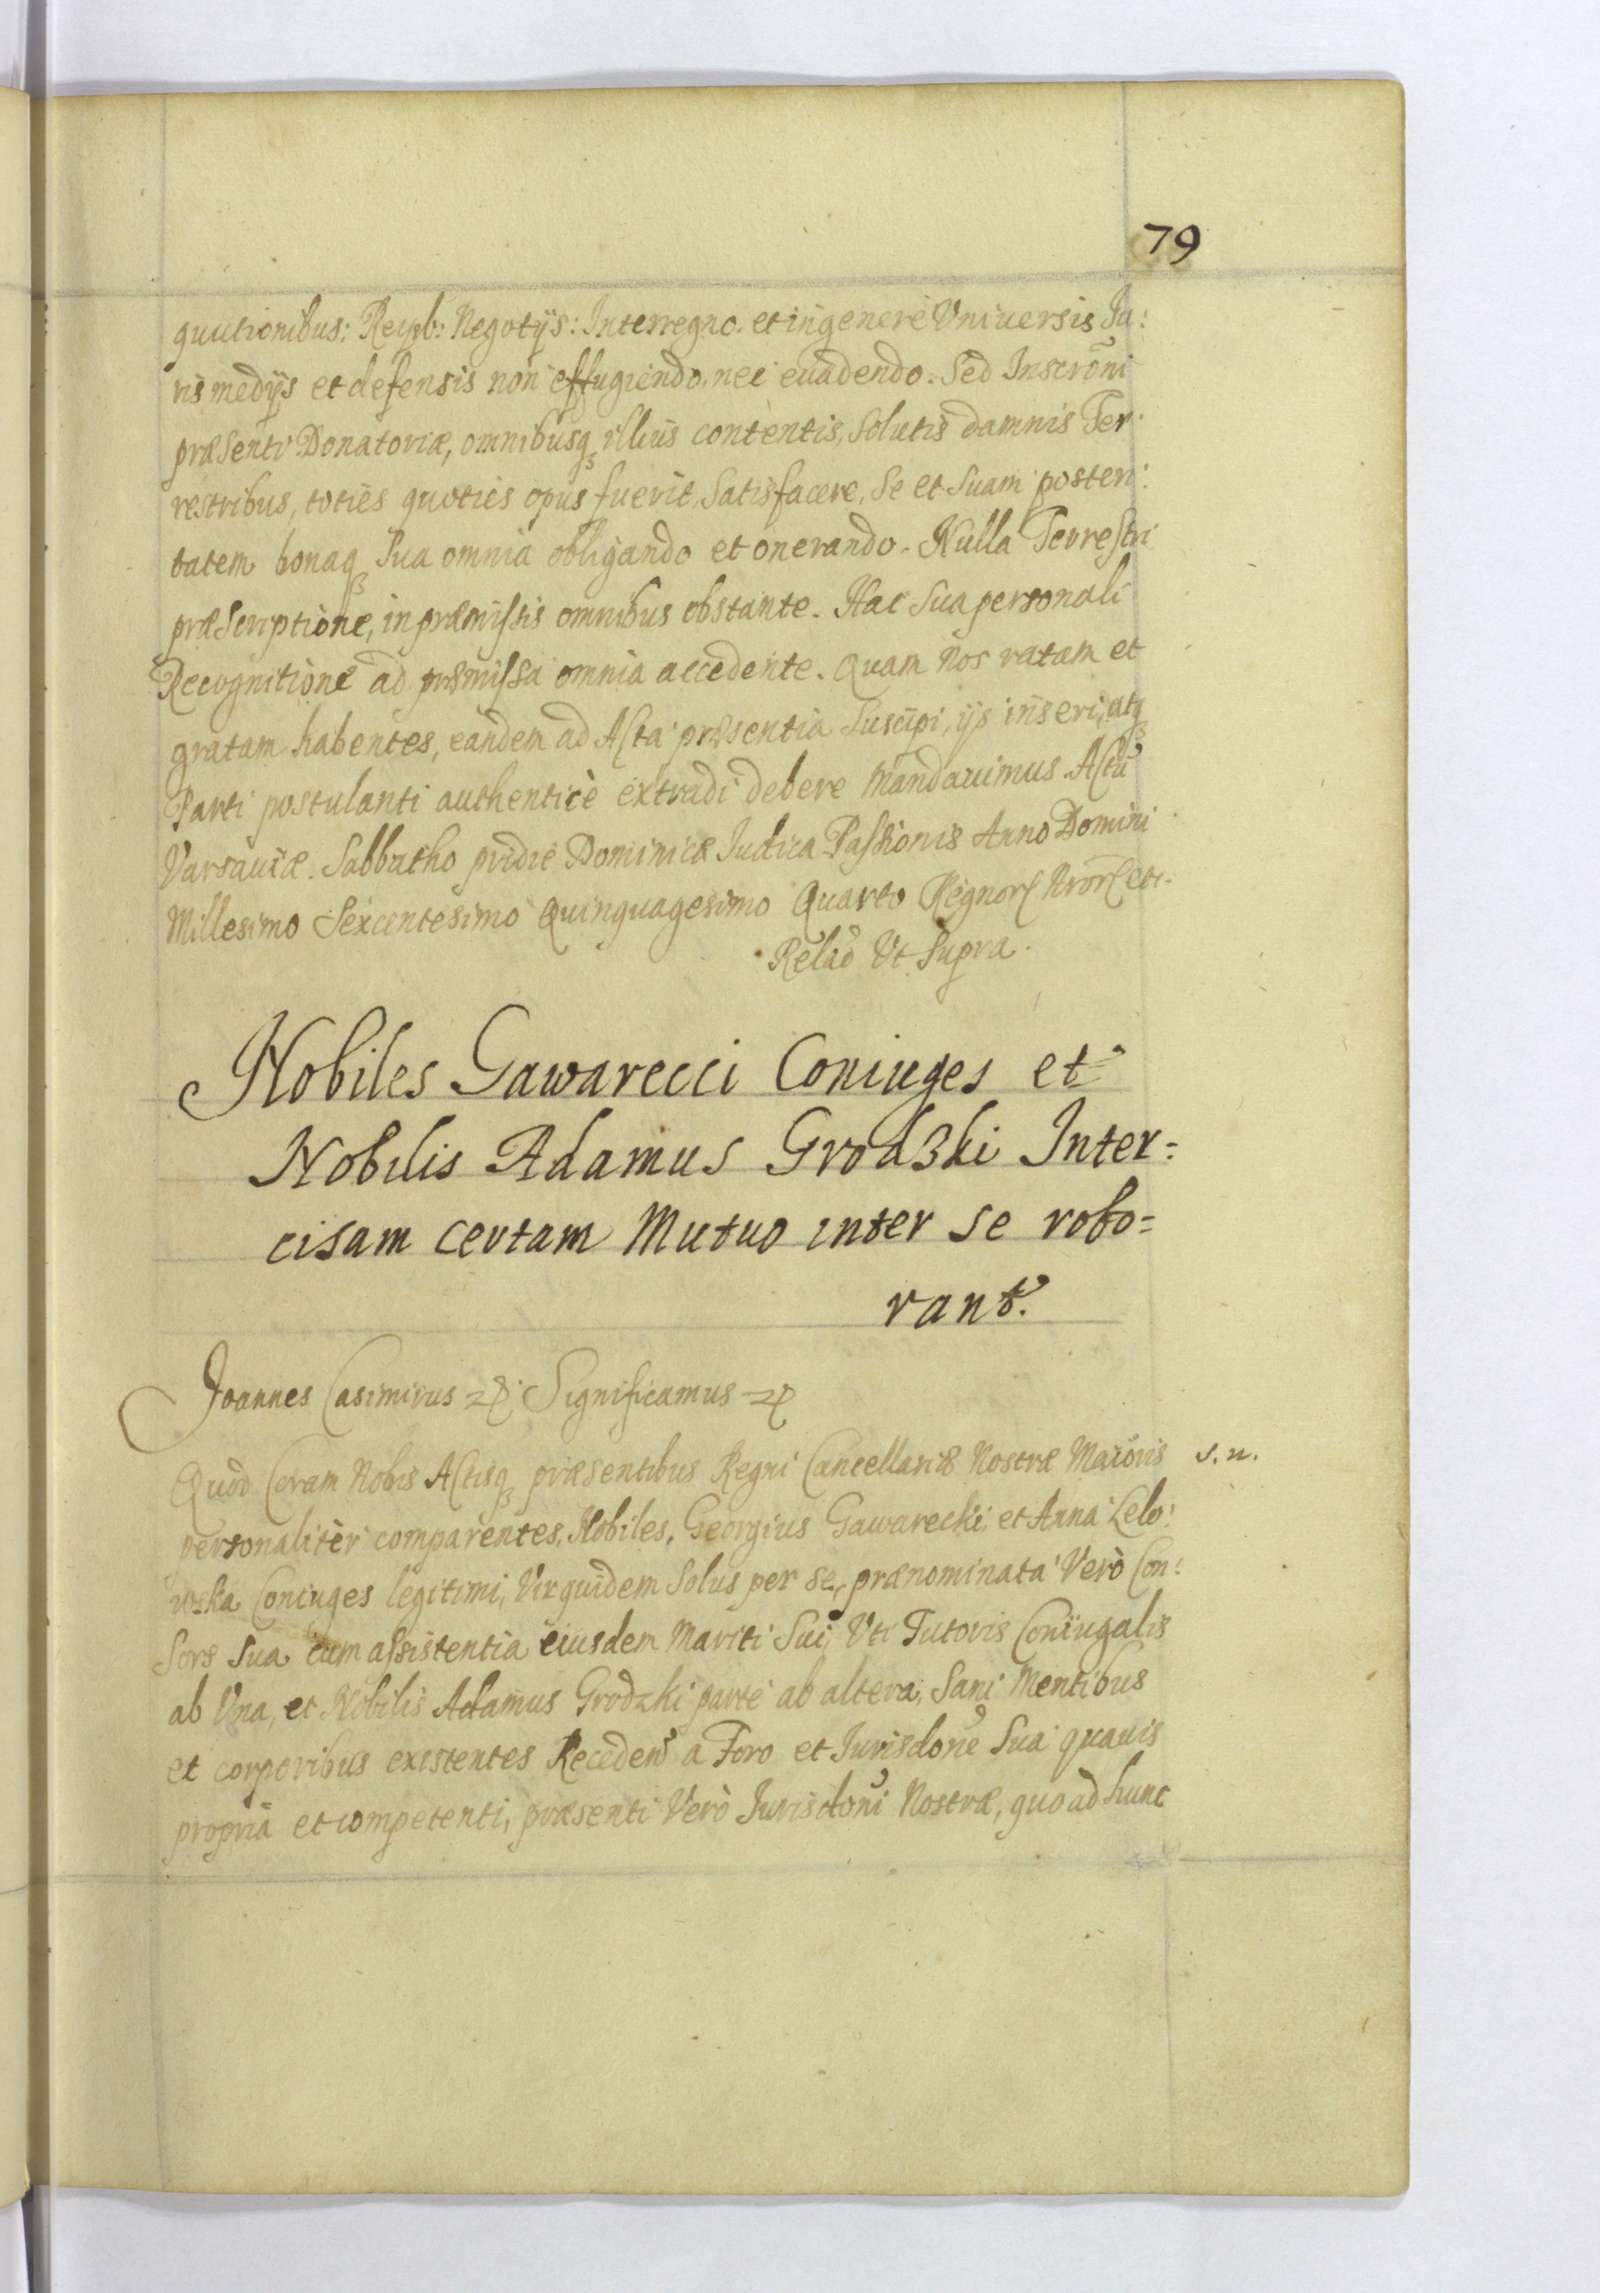 79
quutionibus: Reipb: Negotijs: Interregno. et in genere Vniuersis Iu:
ris medijs et defensis non effugiendo, nec euadendo. Sed Inscrōni
præsenti Donatoriæ, omnibusq₃ illius contentis, solutis damnis Ter
restribus, toties quoties opus fuerit, Satisfacere, Se et Suam posteri:
tatem bonaq₃ Sua omnia obligando et onerando. Nulla Terrestri
præscriptione, in præmissis omnibus obstante. Hac Sua personali
Recognitione ad præmissa omnia accedente. Quam Nos ratam et
gratam habentes, eandem ad Acta præsentia Suscipi, ijs inseri, atq₃
Parti postulanti authenticè extradi debere mandauimus. Actū
Varsauiæ. Sabbatho pridie Dominicæ Iudica Passionis Anno Domini
Millesimo Sexcentesimo Quinquagesimo Quarto Regnorͫ Nrorͫ etc.
Relaō Vt Supra.
Nobiles Gawarecci Coniuges et
Nobilis Adamus Grodzki Inter=
cisam certam Mutuo inter se robo=
rant.
Joannes Casimirus etc. Significamus etc
Quod Coram Nobis Actisq₃ præsentibus Regni Cancellariæ Nostræ Maioris s. n.
personalitèr comparentes, Nobiles, Georgius Gawarecki, et Anna Lelo:
wska Coniuges legitimi, Vir quidem Solus per se, prænominata Verò Con:
sors sua cum assistentia eiusdem Mariti Sui, Vti Tutoris Coniugalis
ab Vna, et Nobilis Adamus Grodzki parte ab altera, Sani Mentibus
et corporibus existentes Recedeñ a Foro et Iurisdone Sua quauis
propria et competenti, præsenti Verò Iurisdoni Nostræ, quo ad hunc